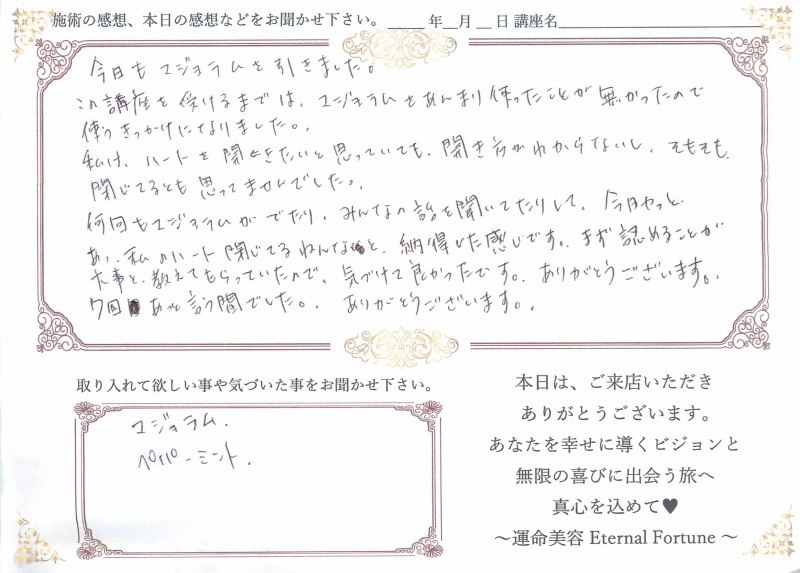 施術の感想、本日の感想などをお聞かせ下さい。 ____ 年__月__日 講座名____________________
今日もマジョラムを引きました。
この講座を受けるまでは、マジョラムをあんまり使ったことが無かったので
使うきっかけになりました。
私は、ハートを開くきたいと思っていても、開き方がわからないし、そもそも
閉じてるとも思ってませんでした。
何回もマジョラムがでたり、みんなの話を聞いてたりして、今日やっと
あっ、私のハート閉じてるねんなと、納得した感じです。まず認めることが
大事と、教えてもらっていたので、気づけて良かったです。ありがとうございます。
7回あっと言う間でした。ありがとうございます。
取り入れて欲しい事や気づいた事をお聞かせ下さい。
マジョラム、
ペパーミント、
本日は、ご来店いただき
ありがとうございます。
あなたを幸せに導くビジョンと
無限の喜びに出会う旅へ
真心を込めて♥
～運命美容 Eternal Fortune ～